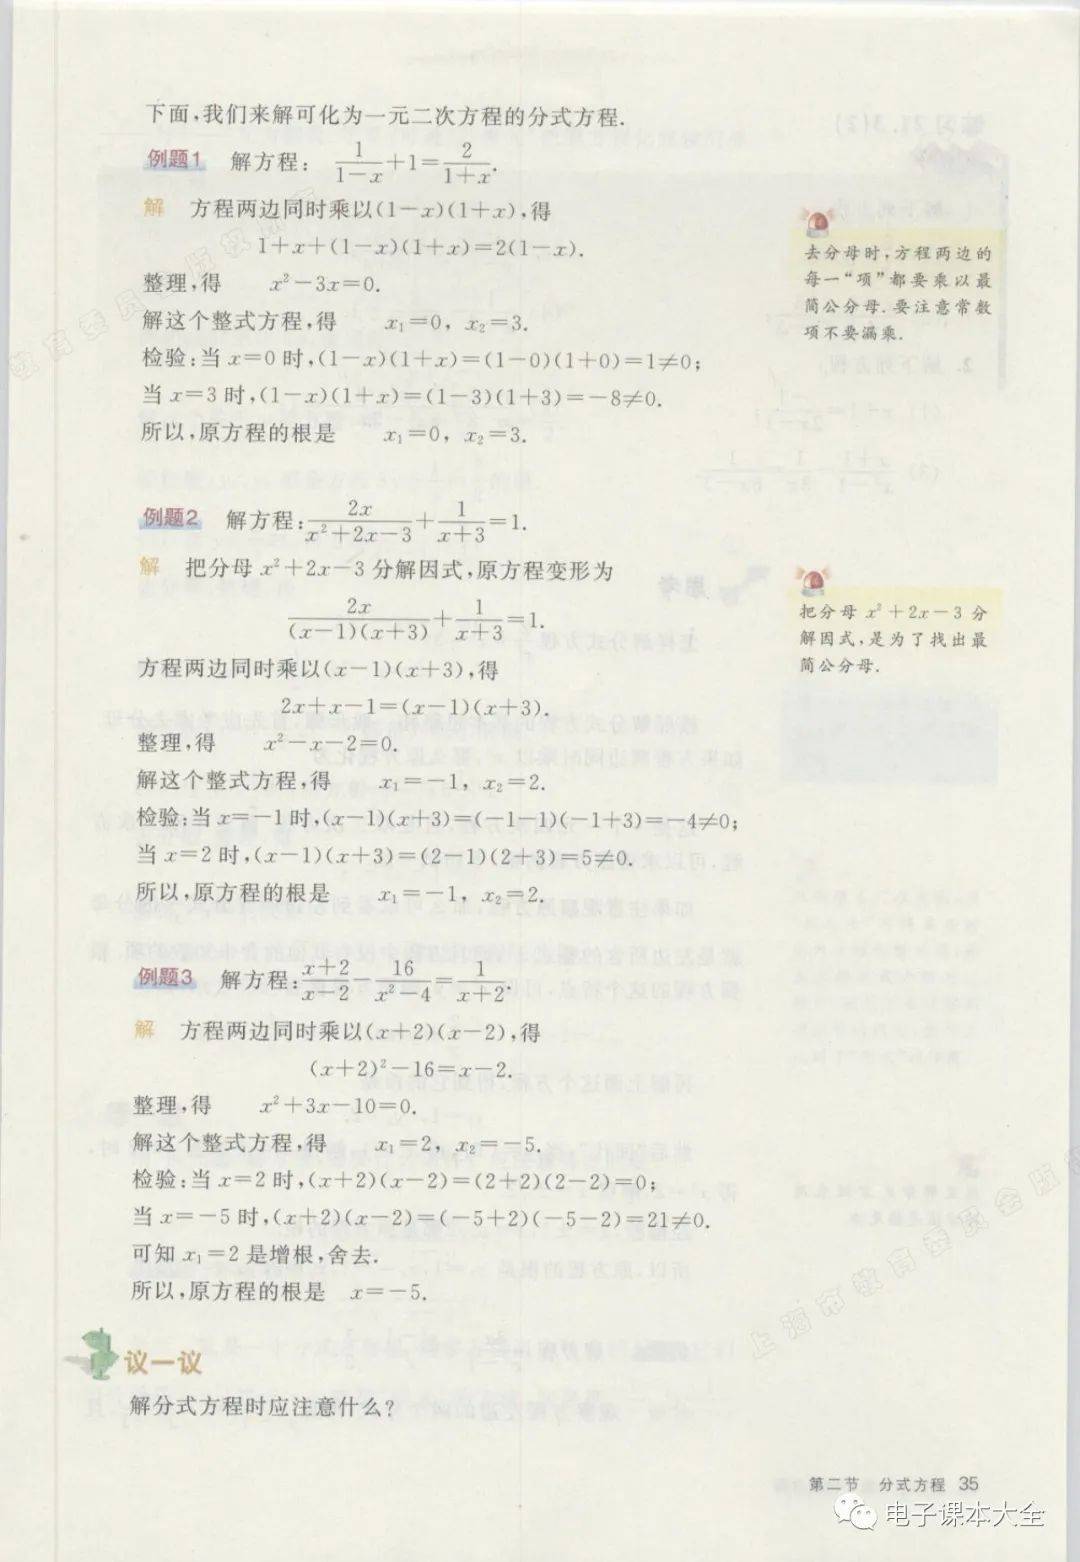 下面,我们来解可化为一元二次方程的分式方程.
例题1 解方程: 1/(1-x)+1=2/(1+x).
解 方程两边同时乘以(1-x)(1+x),得
1+x+(1-x)(1+x)=2(1-x).
整理,得 x²-3x=0.
解这个整式方程,得 x₁=0, x₂=3.
检验:当 x=0 时,(1-x)(1+x)=(1-0)(1+0)=1≠0;
当 x=3 时,(1-x)(1+x)=(1-3)(1+3)=-8≠0.
所以,原方程的根是 x₁=0, x₂=3.
去分母时,方程两边的
每一“项”都要乘以最
简公分母.要注意常数
项不要漏乘.
例题2 解方程: 2x/(x²+2x-3)+1/(x+3)=1.
解 把分母 x²+2x-3 分解因式,原方程变形为
2x/((x-1)(x+3))+1/(x+3)=1.
方程两边同时乘以(x-1)(x+3),得
2x+x-1=(x-1)(x+3).
整理,得 x²-x-2=0.
解这个整式方程,得 x₁=-1, x₂=2.
检验:当 x=-1 时,(x-1)(x+3)=(-1-1)(-1+3)=-4≠0;
当 x=2 时,(x-1)(x+3)=(2-1)(2+3)=5≠0.
所以,原方程的根是 x₁=-1, x₂=2.
把分母 x²+2x-3 分
解因式,是为了找出最
简公分母.
例题3 解方程: (x+2)/(x-2)-16/(x²-4)=1/(x+2).
解 方程两边同时乘以(x+2)(x-2),得
(x+2)²-16=x-2.
整理,得 x²+3x-10=0.
解这个整式方程,得 x₁=2, x₂=-5.
检验:当 x=2 时,(x+2)(x-2)=(2+2)(2-2)=0;
当 x=-5 时,(x+2)(x-2)=(-5+2)(-5-2)=21≠0.
可知 x₁=2 是增根,舍去.
所以,原方程的根是 x=-5.
议一议
解分式方程时应注意什么?
第二节 分式方程 35
电子课本大全